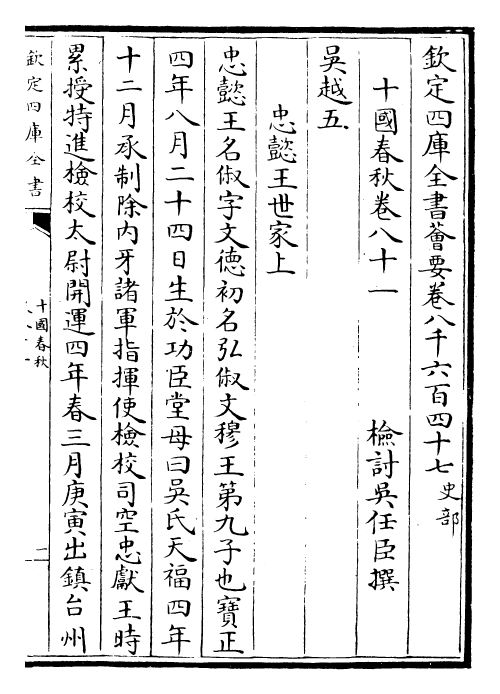 欽定四庫全書薈要卷八千六百四十七 史部
十國春秋卷八十一
檢討吳任臣撰
吳越五
忠懿王世家上
忠懿王名俶字文德初名弘俶文穆王第九子也寶正
四年八月二十四日生於功臣堂母曰吳氏天福四年
十二月承制除内牙諸軍指揮使檢校司空忠獻王時
累授特進檢校太尉開運四年春三月庚寅出鎮台州
欽定四庫全書
十國春秋